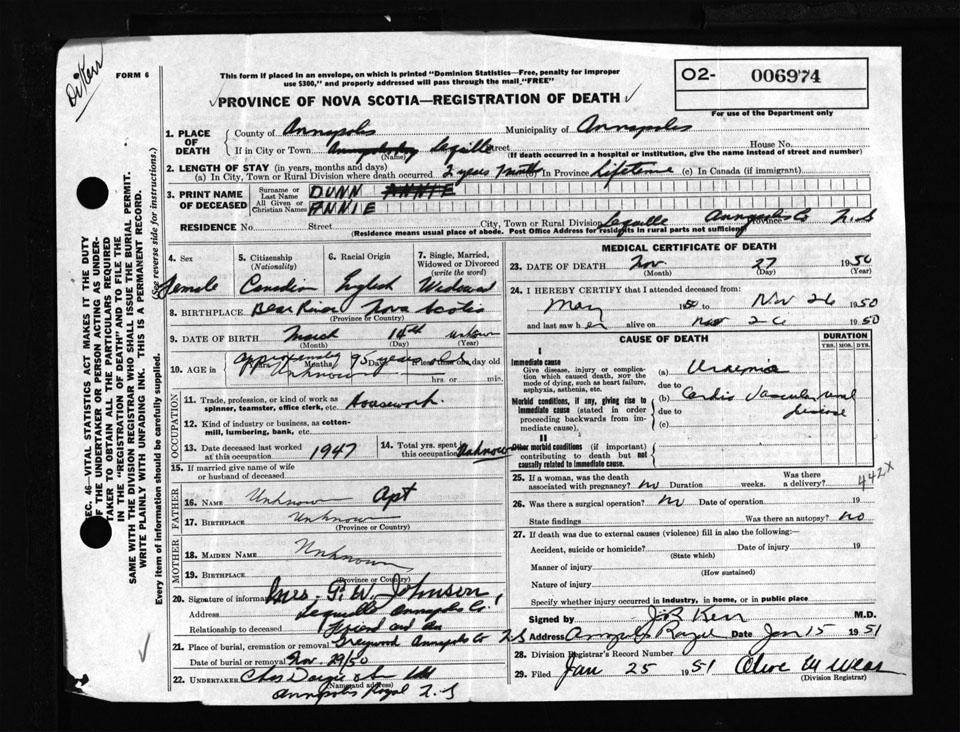 Dr Kerr
FORM 6
This form if placed in an envelope, on which is printed "Dominion Statistics—Free, penalty for improper
use $300," and properly addressed will pass through the mail "FREE"
O2- 006974
For use of the Department only
PROVINCE OF NOVA SCOTIA—REGISTRATION OF DEATH
1. PLACE OF DEATH
County of Annapolis Municipality of Annapolis
If in City or Town Lequille Street House No.
(Name) (If death occurred in a hospital or institution, give the name instead of street and number)
2. LENGTH OF STAY (in years, months and days)
(a) In City, Town or Rural Division where death occurred 2 years months (b) In Province Lifetime (c) In Canada (if immigrant)
3. PRINT NAME OF DECEASED
Surname or Last Name DUNN ANNIE
All Given or Christian Names ANNIE
RESIDENCE No. Street City, Town or Rural Division Lequille Annapolis Co Province N.S
(Residence means usual place of abode. Post Office Address for residents in rural parts not sufficient)
4. Sex Female
5. Citizenship (Nationality) Canadian
6. Racial Origin English
7. Single, Married, Widowed or Divorced (write the word) Widowed
8. BIRTHPLACE Bear River Nova Scotia
(Province or Country)
9. DATE OF BIRTH March 14th unknown
(Month) (Day) (Year)
10. AGE in Years Months Days If less than one day old
95 years old
Unknown hrs. or min.
OCCUPATION
11. Trade, profession, or kind of work as spinner, teamster, office clerk, etc. Housework.
12. Kind of industry or business, as cotton-mill, lumbering, bank, etc.
13. Date deceased last worked at this occupation 1947
14. Total yrs. spent in this occupation Unknown
15. If married give name of wife or husband of deceased
FATHER
16. NAME Unknown Apt
17. BIRTHPLACE Unknown
(Province or Country)
MOTHER
18. MAIDEN NAME Unknown
19. BIRTHPLACE
(Province or Country)
20. Signature of informant Mrs. P. W. Johnson,
Address Lequille Annapolis Co.
Relationship to deceased Friend
21. Place of burial, cremation or removal Greywood Annapolis Co N.S
Date of burial or removal Nov. 29/50
22. UNDERTAKER Chas Dargie & Son Ltd
(Name and address)
Annapolis Royal N.S
MEDICAL CERTIFICATE OF DEATH
23. DATE OF DEATH Nov 27 1950
(Month) (Day) (Year)
24. I HEREBY CERTIFY that I attended deceased from:
May 1950 to Nov 26 1950
and last saw her alive on Nov 26 1950
CAUSE OF DEATH
DURATION
YRS. MOS. DYS.
I
Immediate cause
Give disease, injury or complication which caused death, not the mode of dying, such as heart failure, asphyxia, asthenia, etc.
(a) Uraemia
due to
Morbid conditions, if any, giving rise to immediate cause (stated in order proceeding backwards from immediate cause).
(b) Cardio Vascular renal
due to disease
(c)
II
Other morbid conditions (if important) contributing to death but not causally related to immediate cause.
442X
25. If a woman, was the death associated with pregnancy? no Duration weeks. Was there a delivery?
26. Was there a surgical operation? no Date of operation 19
State findings Was there an autopsy? no
27. If death was due to external causes (violence) fill in also the following:
Accident, suicide or homicide? Date of injury 19
(State which)
Manner of injury
(How sustained)
Nature of injury
Specify whether injury occurred in industry, in home, or in public place
Signed by Kerr M.D.
Address Annapolis Royal Date Jan 15 1951
28. Division Registrar's Record Number
29. Filed Jan 25 1951 Olive M Wear
(Division Registrar)
SEC. 46—VITAL STATISTICS ACT MAKES IT THE DUTY
OF THE UNDERTAKER OR PERSON ACTING AS UNDER-
TAKER TO OBTAIN ALL THE PARTICULARS REQUIRED
IN THE "REGISTRATION OF DEATH" AND TO FILE THE
SAME WITH THE DIVISION REGISTRAR WHO SHALL ISSUE THE BURIAL PERMIT.
WRITE PLAINLY WITH UNFADING INK. THIS IS A PERMANENT RECORD.
Every item of information should be carefully supplied. (See reverse side for instructions.)